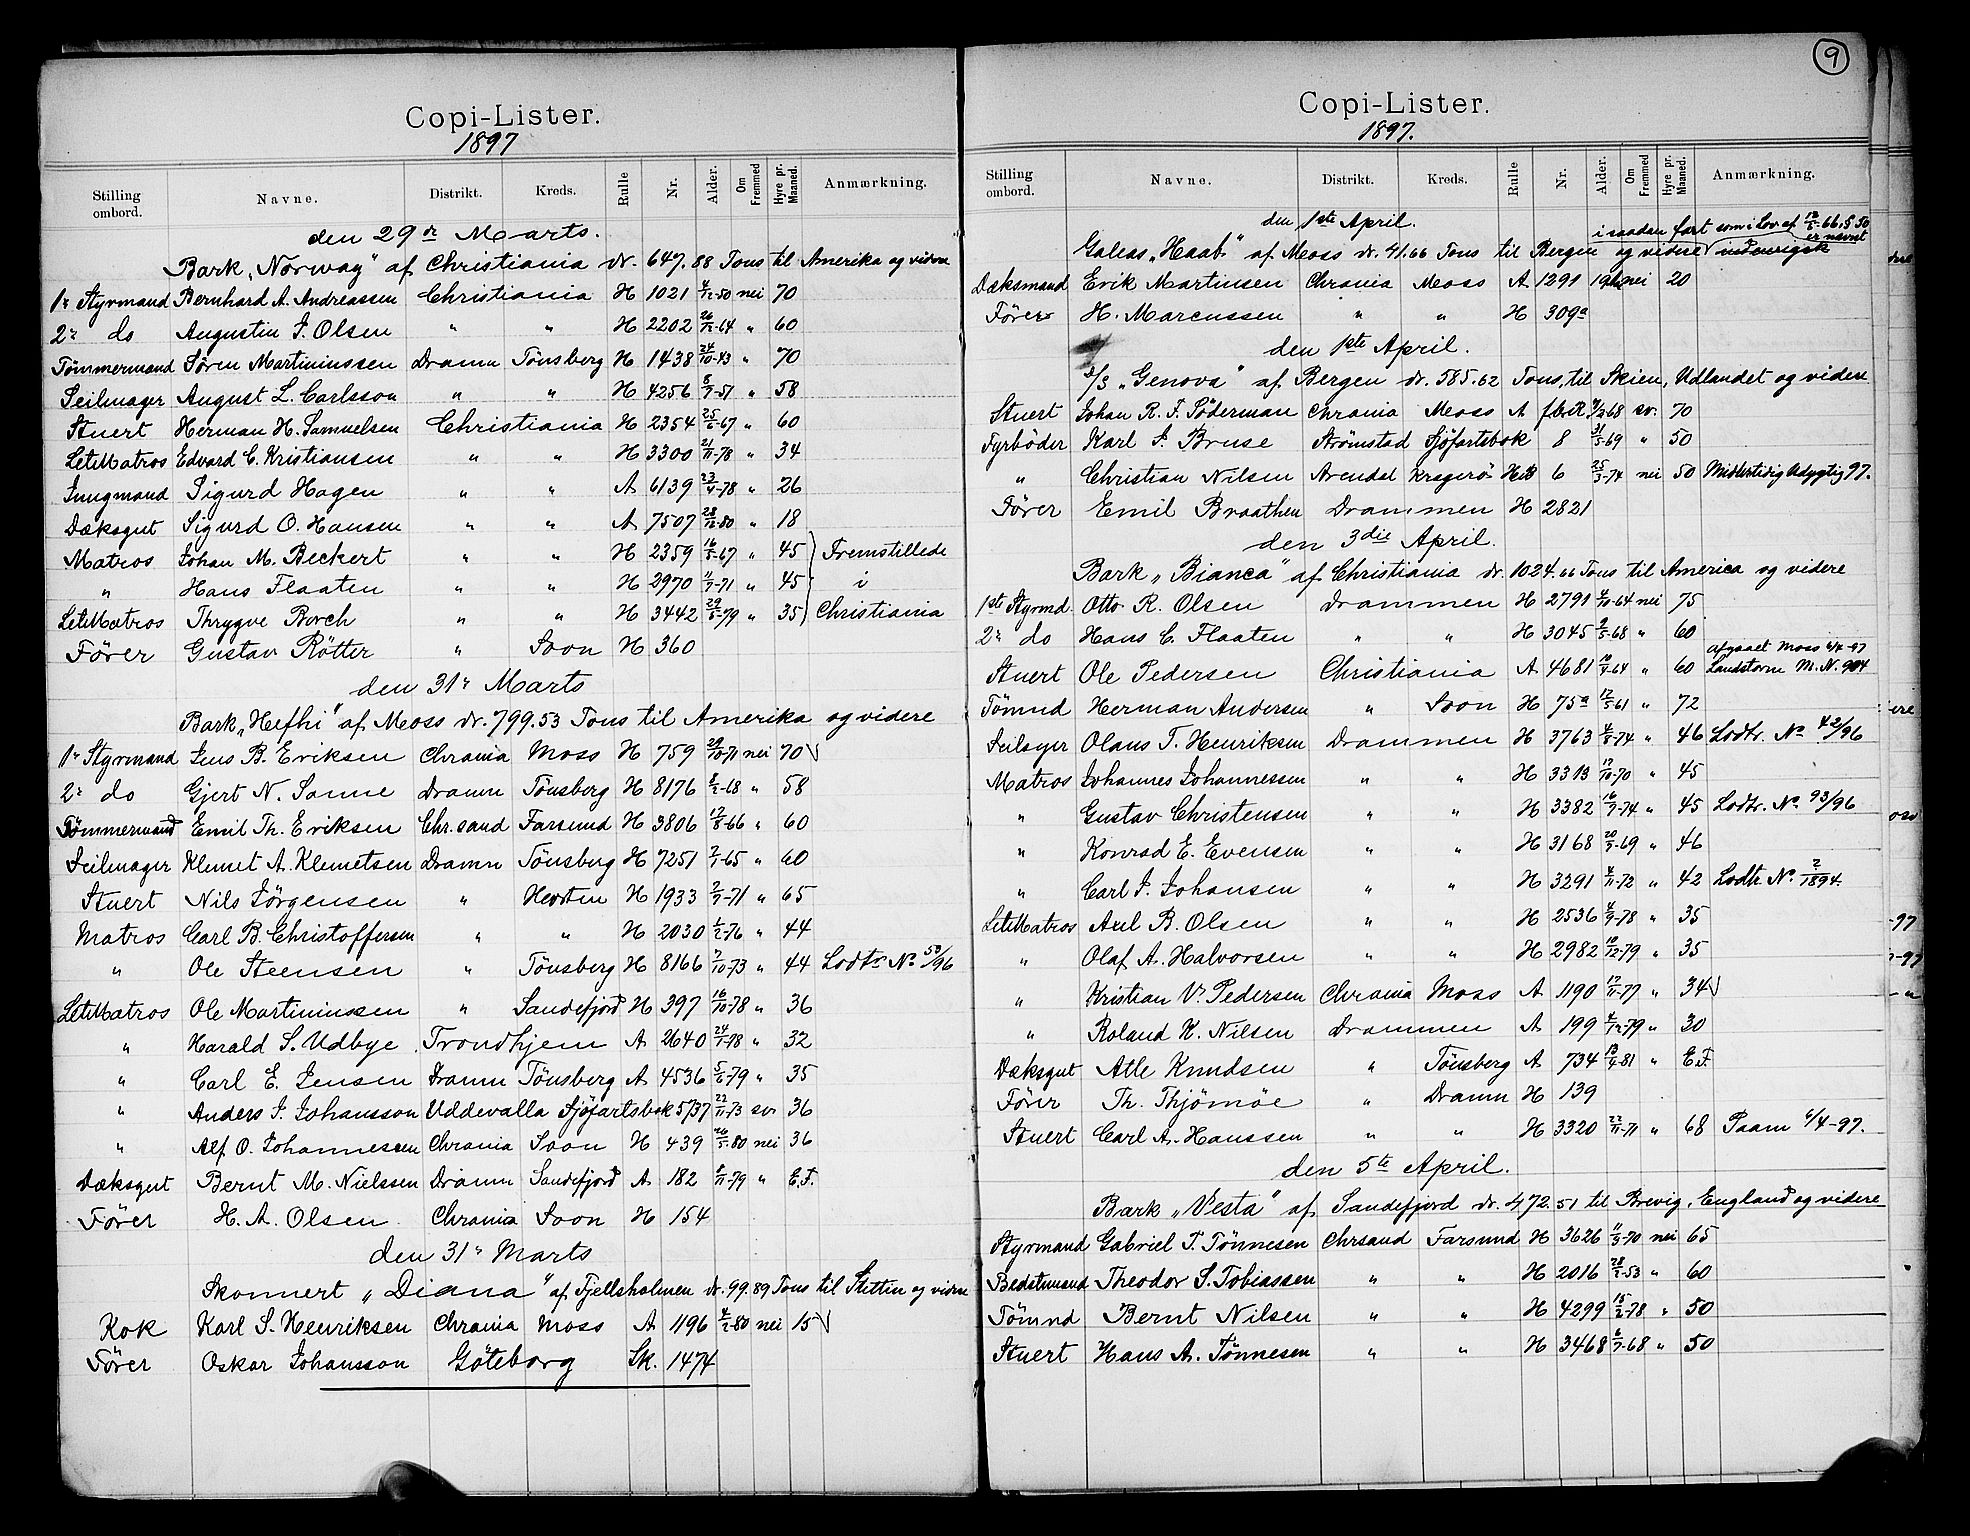 Copi-Lister.
1897
Stilling ombord. Navne. Distrikt. Kreds. Rulle Nr. Alder. Om Fremmed Hyre pr. Maaned. Anmærkning.
den 29de Marts.
Bark "Norway" af Christiania dr. 647.88 Tons til Amerika og videre
1ste Styrmand Bernhard A. Andreassen Christiania H 1021 4/12-50 nei 70
2n do Augustin J. Olsen " " H 2202 26/12-64 " 60
Tømmermand Søren Martiniussen Dramn Tönsberg H 1438 24/10-43 " 70
Seilmager August L. Carlsson " " H 4256 8/7-51 " 58
Stuert Herman H. Samuelsen Christiania H 2354 25/6-67 " 60
LetMatros Edvard C. Kristiansen " " H 3300 21/11-78 " 34
Jungmand Sigurd Hagen " " A 6139 23/4-78 " 26
Dæksgut Sigurd O. Hansen " " A 7507 28/12-80 " 18
Matros Johan M. Beckert " " H 2359 16/5-67 " 45 Fremstillede
" Hans Flaaten " " H 2970 11/7-71 " 45 i
LetMatros Thrygve Borch " " H 3442 29/5-79 " 35 Christiania
Förer Gustav Rötter " Soon H 360
den 31n Marts
Bark "Hefhi" af Moss dr. 799.53 Tons til Amerika og videre
1n Styrmand Jens B. Eriksen Chrania Moss H 759 29/10-71 nei 70
2n do Gjert N. Sanne Dramn Tönsberg H 8176 8/2-68 " 58
Tømmermand Emil Th. Eriksen Chr.sand Farsund H 3806 17/8-66 " 60
Seilmager Klemet A. Klemetsen Dramn Tönsberg H 7251 2/1-65 " 60
Stuert Nils Jörgensen " Horten H 1933 2/7-71 " 65
Matros Carl B. Christoffersen " " H 2030 1/2-76 " 44
" Ole Steensen " Tönsberg H 8166 7/10-73 " 44 Lodtr No 50/96
LetMatros Ole Martiniussen " Sandefjord H 397 16/10-78 " 36
" Harald S. Udbye Trondhjem A 2640 24/1-78 " 32
" Carl E. Jensen Dramn Tönsberg A 4536 5/6-79 " 35
" Anders J. Johansson Uddevalla Sjöfartsbok 5737 22/11-73 sv. 36
" Alf O. Johannessen Chrania Soon H 439 26/5-80 nei 36
Dæksgut Bernt M. Nielssen Dramn Sandefjord A 182 8/11-79 " E.F.
Förer H. A. Olsen Chrania Soon H 154
den 31n Marts
Skonnert "Diana" af Fjellsholmen dr. 99.89 Tons til Stettin og videre
Kok Karl S. Henriksen Chrania Moss A 1196 4/2-80 nei 15
Förer Oskar Johansson Göteborg Sk. 1474
9
Copi-Lister.
1897.
Stilling ombord. Navne. Distrikt. Kreds. Rulle Nr. Alder. Om Fremmed Hyre pr. Maaned. Anmærkning.
den 1ste April.
i saadan fart som i Lov af 12/5-66, § 50 er nævnt
Galeas "Haab" af Moss dr. 41.66 Tons til Bergen og videre indenrigsk
Dæksmand Erik Martinsen Chrania Moss A 1291 nei 20
Förer H. Marcussen " " H 309a
den 1ste April.
D/S "Genova" af Bergen dr. 585.62 Tons, til Skien, Udlandet og videre
Stuert Johan R. F. Söderman Chrania Moss A 68 sv. 70
Fyrböder Karl J. Bruse Strömstad Sjöfartsbok 8 31/5-69 " 50
" Christian Nilsen Arendal Kragerö 6 25/3-74 nei 50 Midlertidig Udygtig 97.
Förer Emil Braathen Drammen H 2821
den 3die April.
Bark "Bianca" af Christiania dr. 1024.66 Tons til America og videre
1ste Styrmd. Otto R. Olsen Drammen H 2791 2/10-64 nei 75
2n do Hans C. Flaaten " " H 3045 9/5-68 " 60
afgaaet Moss 6/4-97
Stuert Ole Pedersen Christiania A 4681 10/9-64 " 60 Landstorm M. N. 904
Tömnd Herman Andersen " Soon H 75a 12/5-61 " 72
Seilmgr Olaus T. Henriksen Drammen H 3763 4/8-74 " 46 Lodtr. No 42/96
Matros Johannes Johannessen " " H 3313 17/10-70 " 45
" Gustav Christensen " " H 3382 16/9-74 " 45 Lodtr. No 93/96
" Konrad E. Evensen " " H 3168 20/3-69 " 46
" Carl J. Johansen " " H 3291 4/11-72 " 42 Lodtr No 2/1894.
LetMatros Axel B. Olsen " " H 2536 4/9-78 " 35
" Olaf A. Halvorsen " " H 2982 10/12-79 " 35
" Kristian V. Pedersen Chrania Moss A 1190 17/11-77 " 34
" Roland K. Nilsen Drammen A 199 4/12-79 " 30
Dæksgut Atle Knudsen " Tönsberg A 734 13/4-81 " E.F.
Förer Th. Thjömöe " Dramn H 139
Stuert Carl A. Hanssen " " H 3320 22/11-71 " 68 Paam 6/4-97.
den 5te April.
Bark "Vesta" af Sandefjord dr. 472.51 til Brevig, England og videre
Styrmand Gabriel T. Tönnesen Chrsand Farsund H 3626 11/3-70 nei 65
Bedstmand Theodor S. Tobiassen " " H 2016 28/2-53 " 60
Tömnd Bernt Nilsen " " H 4299 15/2-78 " 50
Stuert Hans A. Tönnesen " " H 3468 6/7-68 " 50